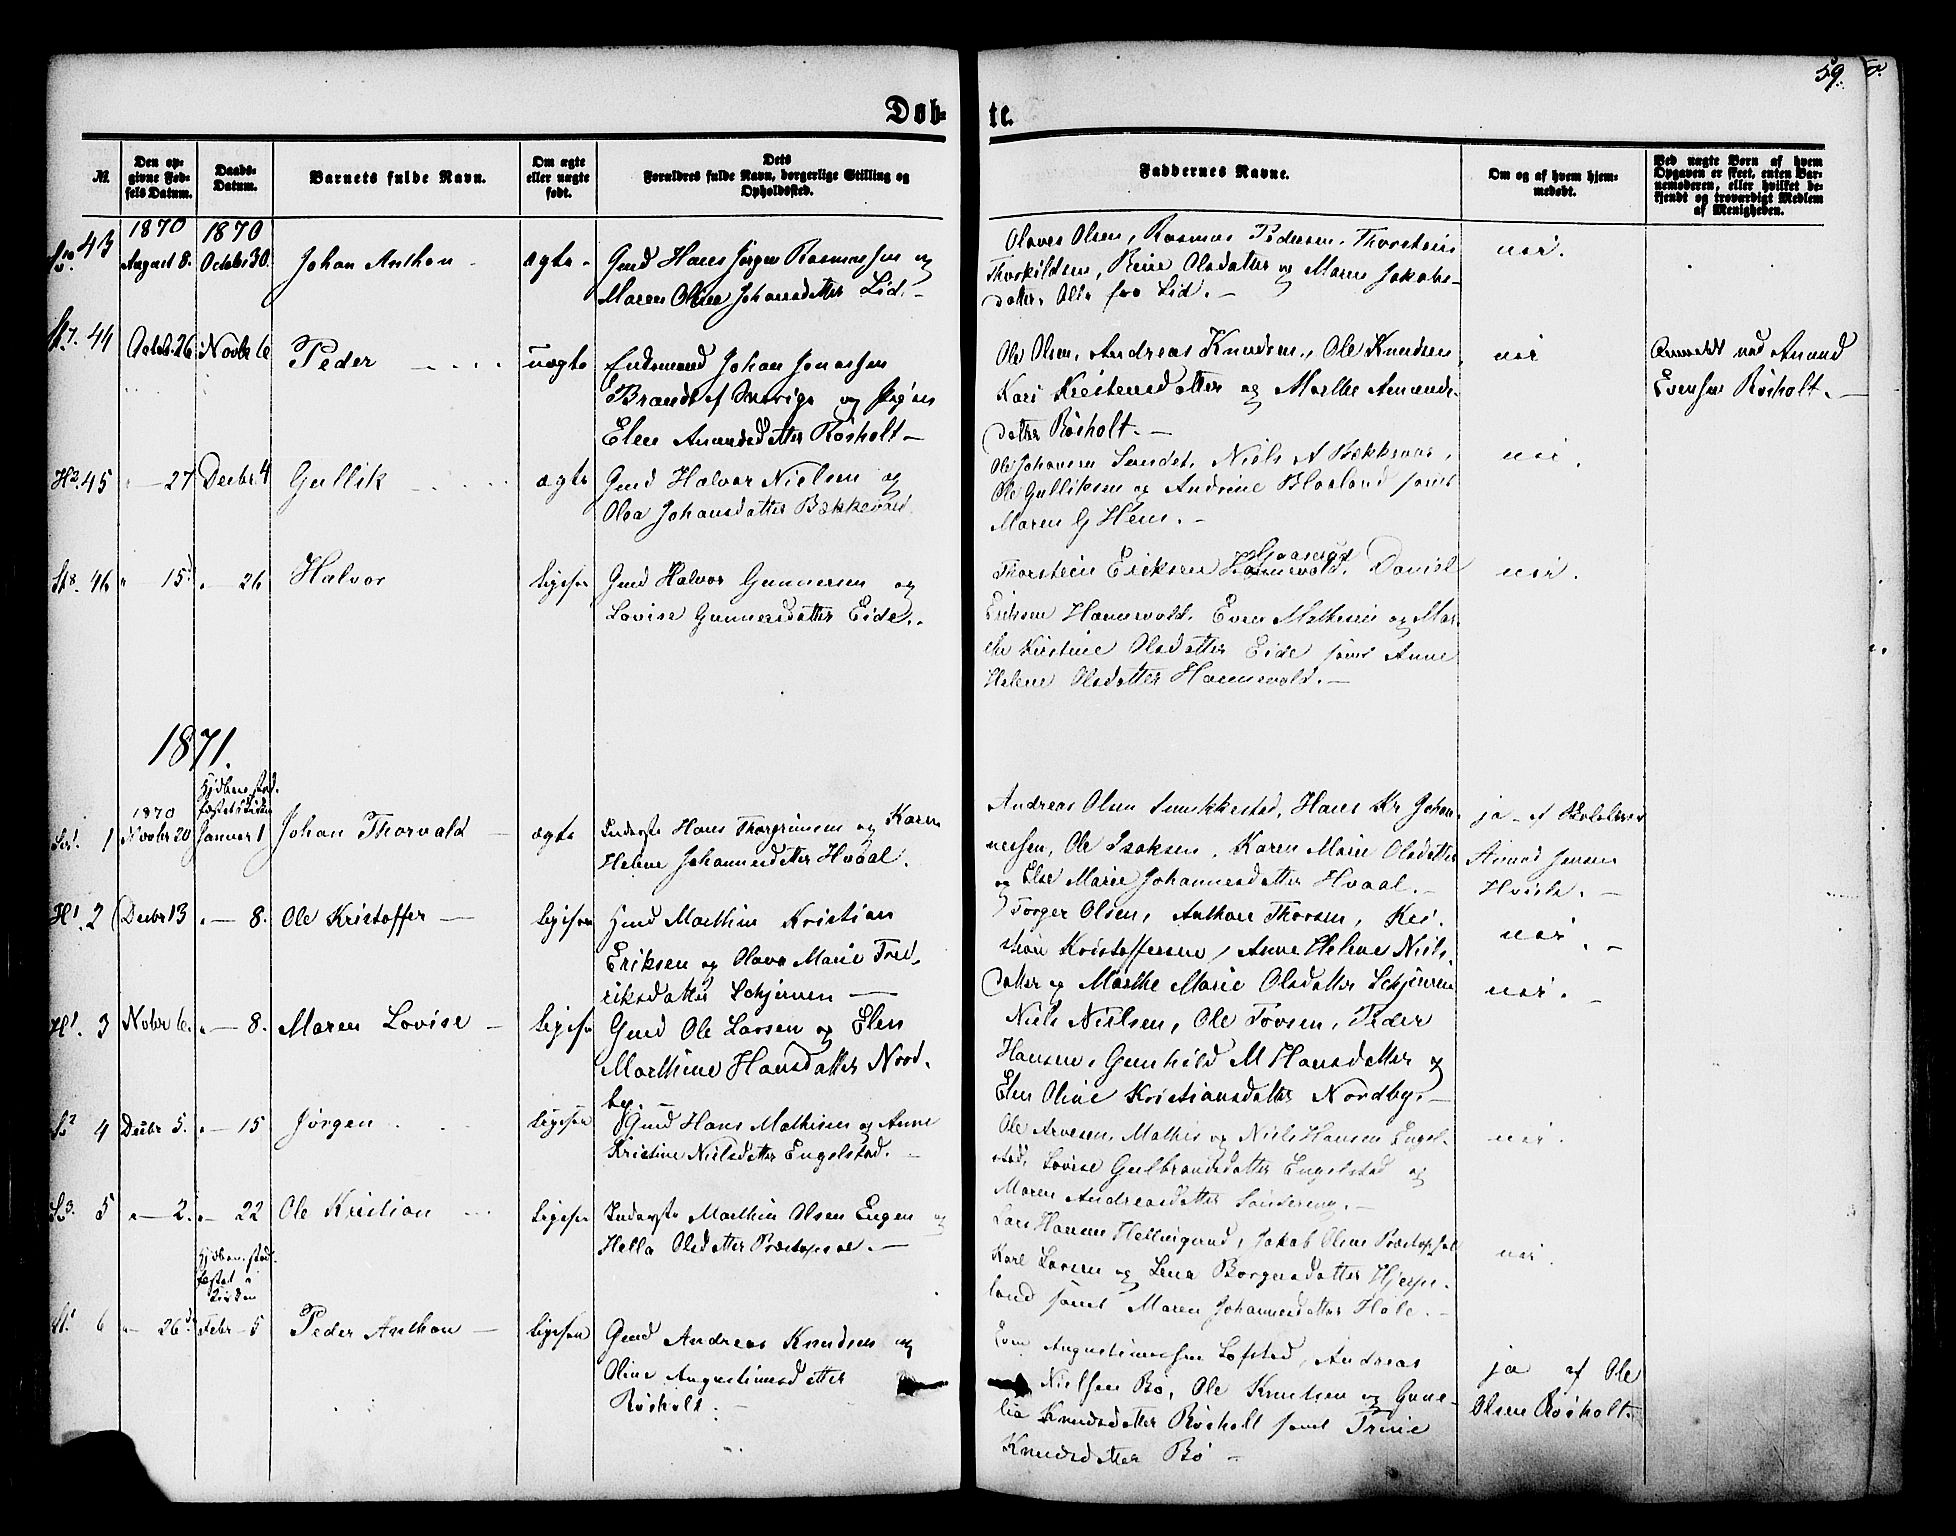 59.
Døb-
te.
№
Den op-
givne Fød-
sels Datum.
Daabs-
Datum.
Barnets fulde Navn.
Om ægte
eller uægte
født.
Dets
Forældres fulde Navn, borgerlige Stilling og
Opholdssted.
Faddernes Navne.
Om og af hvem hjem-
medøbt.
Ved uægte Børn af hvem
Opgaven er skeet, enten Bar-
nemoderen, eller hvilket be-
kjendt og troværdigt Medlem
af Menigheden.
1870
1870
43
August 8.
Octobr 30.
Johan Anthon
ægte
Gmd Hans Jørgen Rasmussen og
Maren Oline Johansdatter Lid.
Olaves Olsen, Rasmus Pedersen, Thorstein
Thorkildsen, Olsdatter og Maren Jakobs-
datter, Alle fra Lid.
nei.
44
Octob. 26
Novbr 6
Peder
uægte
Enkemand Johan Jonassen
Brandt af Sverige og Pigen
Elen Amundsdatter Røsholt
Ole Olsen, Andreas Knudsen, Ole Knudsen,
Kari Kristensdatter og Marthe Amunds-
datter Røsholt.
nei
Anmeldt ved Amund
Evensen Røsholt.
45
27
Decbr. 4
Gullik
ægte
Gmd Halvor Nielsen og
Olea Johansdatter Bækkevar
Ole Johansen Sundet, Niels A Bækkevar,
Ole Gulliksen og Andrine Haaland samt
Maren G Hem.
nei.
46
15
26
Halvor
ligesaa
Gmd Halvor Gunnersen og
Lovise Gunnersdatter Eide.
Thorstein Eriksen Hannevold, Daniel
Eriksen Hannevold, Even Mathisen og Mar-
the Kirstine Olsdatter Eide samt Anne
Helene Olsdatter Hannevold.
nei.
1871.
Hjdbens stad-
fæstet i Kirken
1870
1
Novbr 20
Januar 1
Johan Thorvald
ægte
Inderste Hans Thorgrimsen og Karen
Helene Johannesdatter Hvaal.
Andreas Olsen Smukkestad, Hans Kr Johan-
nessen, Ole Isaksen, Karen Marie Olsdatter
og Else Marie Johannesdatter Hvaal.
ja - af Skolelærer
Amund Jensen
2
Decbr 13
8.
Ole Kristoffer
ligesaa
Gmd Marthin Kristian
Eriksen og Olava Marie Fred-
riksdatter Schjerven
Torger Olsen, Anthon Thorsen, Kri-
stian Kristoffersen, Anne Helene Niels-
datter og Marthe Marie Olsdatter Schjerven
nei.
3
Novbr 6.
8.
Maren Lovise
ligesaa
Gmd Ole Larsen og Elen
Marthine Hansdatter Nord-
by.
Niels Nielsen, Ole Tovsen, Peder
Hansen, Gunhild M Hansdatter og
Elen Oline Kristiansdatter Nordby.
nei.
4
Decbr 5.
15
Jørgen
ligesaa
Gmd Hans Mathisen og Anne
Kristine Nielsdatter Engelstad.
Ole Arvesen, Mathis og Niels Hansen Engel-
stad, Lovise Gulbrandsdatter Engelstad og
Maren Andreasdatter
nei.
5
2.
22
Ole Kristian
ligesaa
Inderste Marthin Olsen Engen og
Hella Olsdatter
Lars Hansen Hellingsrud, Jakob Olsen
Karl Larsen og Lena Borgersdatter Hjerpe-
land samt Maren Johannesdatter Hole.
nei.
Hjdben. stad-
fæstet i
Kirken
6
26
Febr 5
Peder Anthon
ligesaa
Gmd Andreas Knudsen og
Oline Augustinusdatter
Røsholt.
Even Augustinussen Lofstad, Andreas
Nielsen Bø, Ole Knutsen og Gune-
lia Knudsdatter Røsholt samt Trine
Knudsdatter Bø
ja af Ole
Olsen Røsholt.